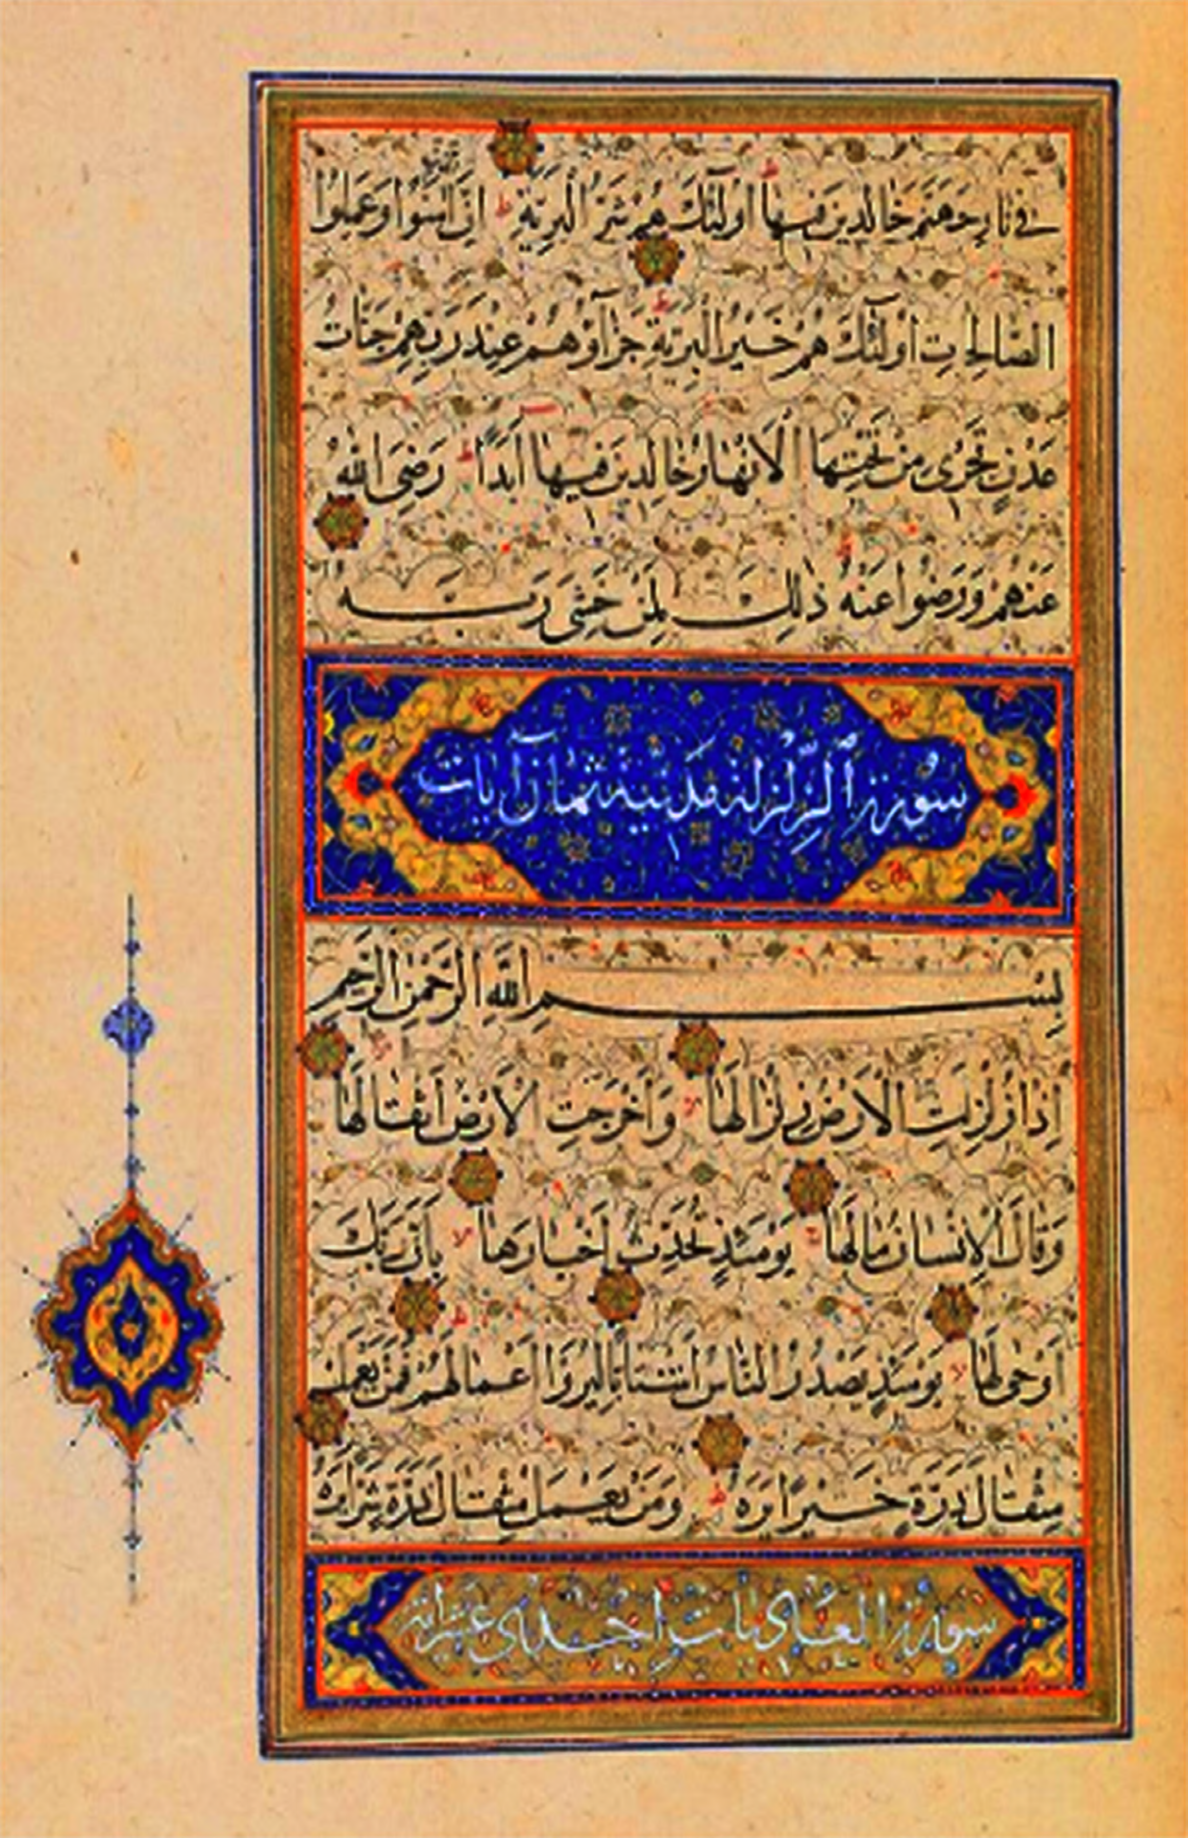 في نار جهنم خالدين فيها اولئك هم شر البرية ان آمنوا وعملوا
الصالحات اولئك هم خير البرية جزاؤهم عند ربهم جنات
عدن تجرى من تحتها الانهار خالدين فيها ابدا رضى الله
عنهم ورضوا عنه ذلك لمن خشى ربه
سورة الزلزلة مدنية ثمان آيات
بسم الله الرحمن الرحيم
اذا زلزلت الارض زلزالها واخرجت الارض اثقالها
وقال الانسان مالها يومئذ تحدث اخبارها بان ربك
اوحى لها يومئذ يصدر الناس اشتاتا ليروا اعمالهم فمن يعمل
مثقال ذرة خيرا يره ومن يعمل مثقال ذرة شرا يره
سورة العاديات احدى عشر آية